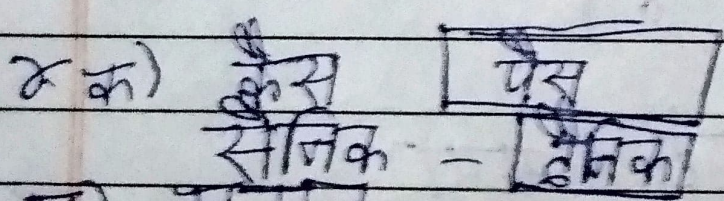 ४ क) कैस पैस
सैनिक - दैनिक